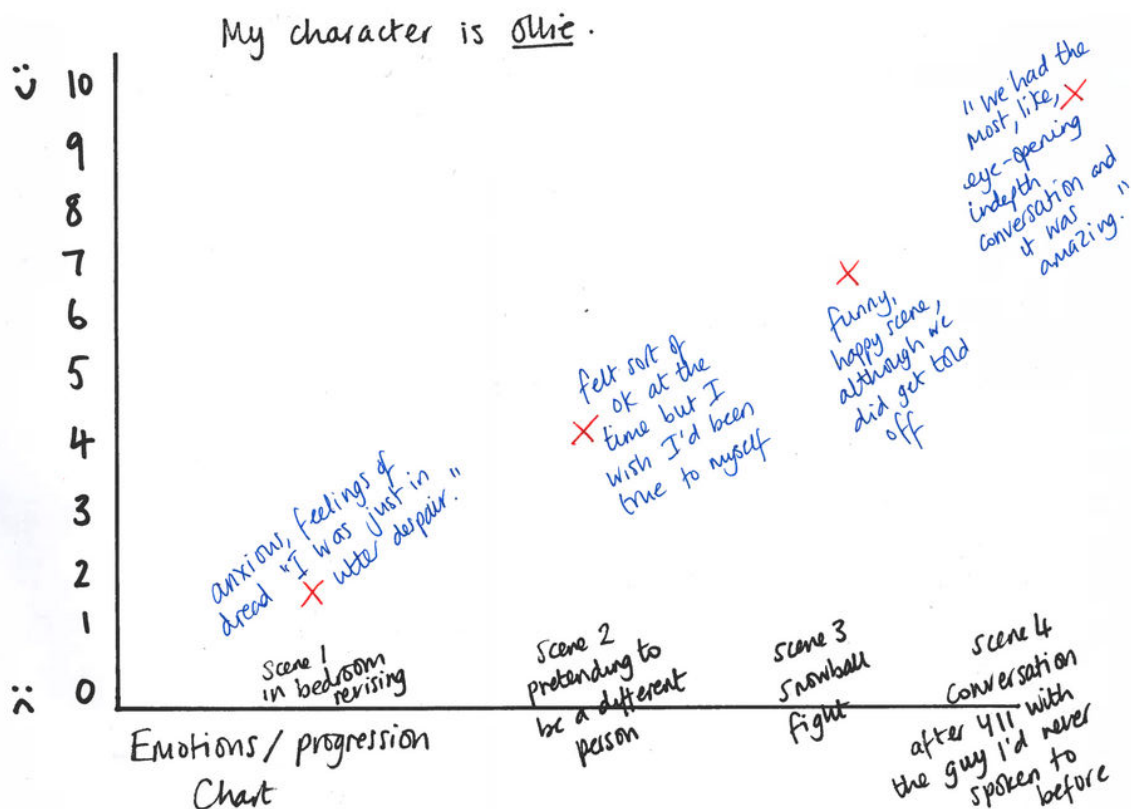 My character is Ollie.
10
9
8
7
6
5
4
3
2
1
0
anxious, feelings of
dread "I was just in
utter despair."
felt sort of
ok at the
time but I
wish I'd been
true to myself
funny,
happy scene,
although we
did get told
off
"We had the
most, like,
eye-opening
indepth
conversation and
it was
amazing."
scene 1
in bedroom
revising
scene 2
pretending to
be a different
person
scene 3
snowball
fight
scene 4
conversation
after Y11 with
the guy I'd never
spoken to
before
Emotions / progression
Chart